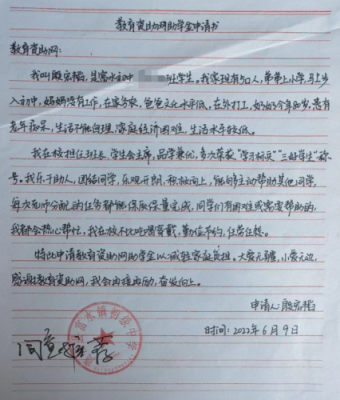 教育资助网助学金申请书
教育资助网:
我叫殷宏福,是富水初中 班学生。我家现有5口人,弟弟上小学,马上步
入初中,妈妈没有工作,在家务农,爸爸文化水平低,在外打工,奶奶今年80岁,患有
老年痴呆,生活不能自理,家庭经济困难,生活水平较低。
我在校担任班长、学生会主席,品学兼优,多次荣获"学习标兵""三好学生"称
号。我乐于助人,团结同学,乐观开朗,积极向上,能够主动帮助其他同学,
每次老师分配的任务都能保质保量完成,同学们有困难或需要帮助的,
我都会热心帮忙,我在校不比吃喝穿戴,勤俭节约,任劳任怨。
特此申请教育资助网助学金以减轻家庭负担。大爱无疆,小爱无边,
感谢教育资助网,我会再接再励,奋发向上。
申请人:殷宏
时间:2022年6月9日
富水镇初级中学
同意推荐